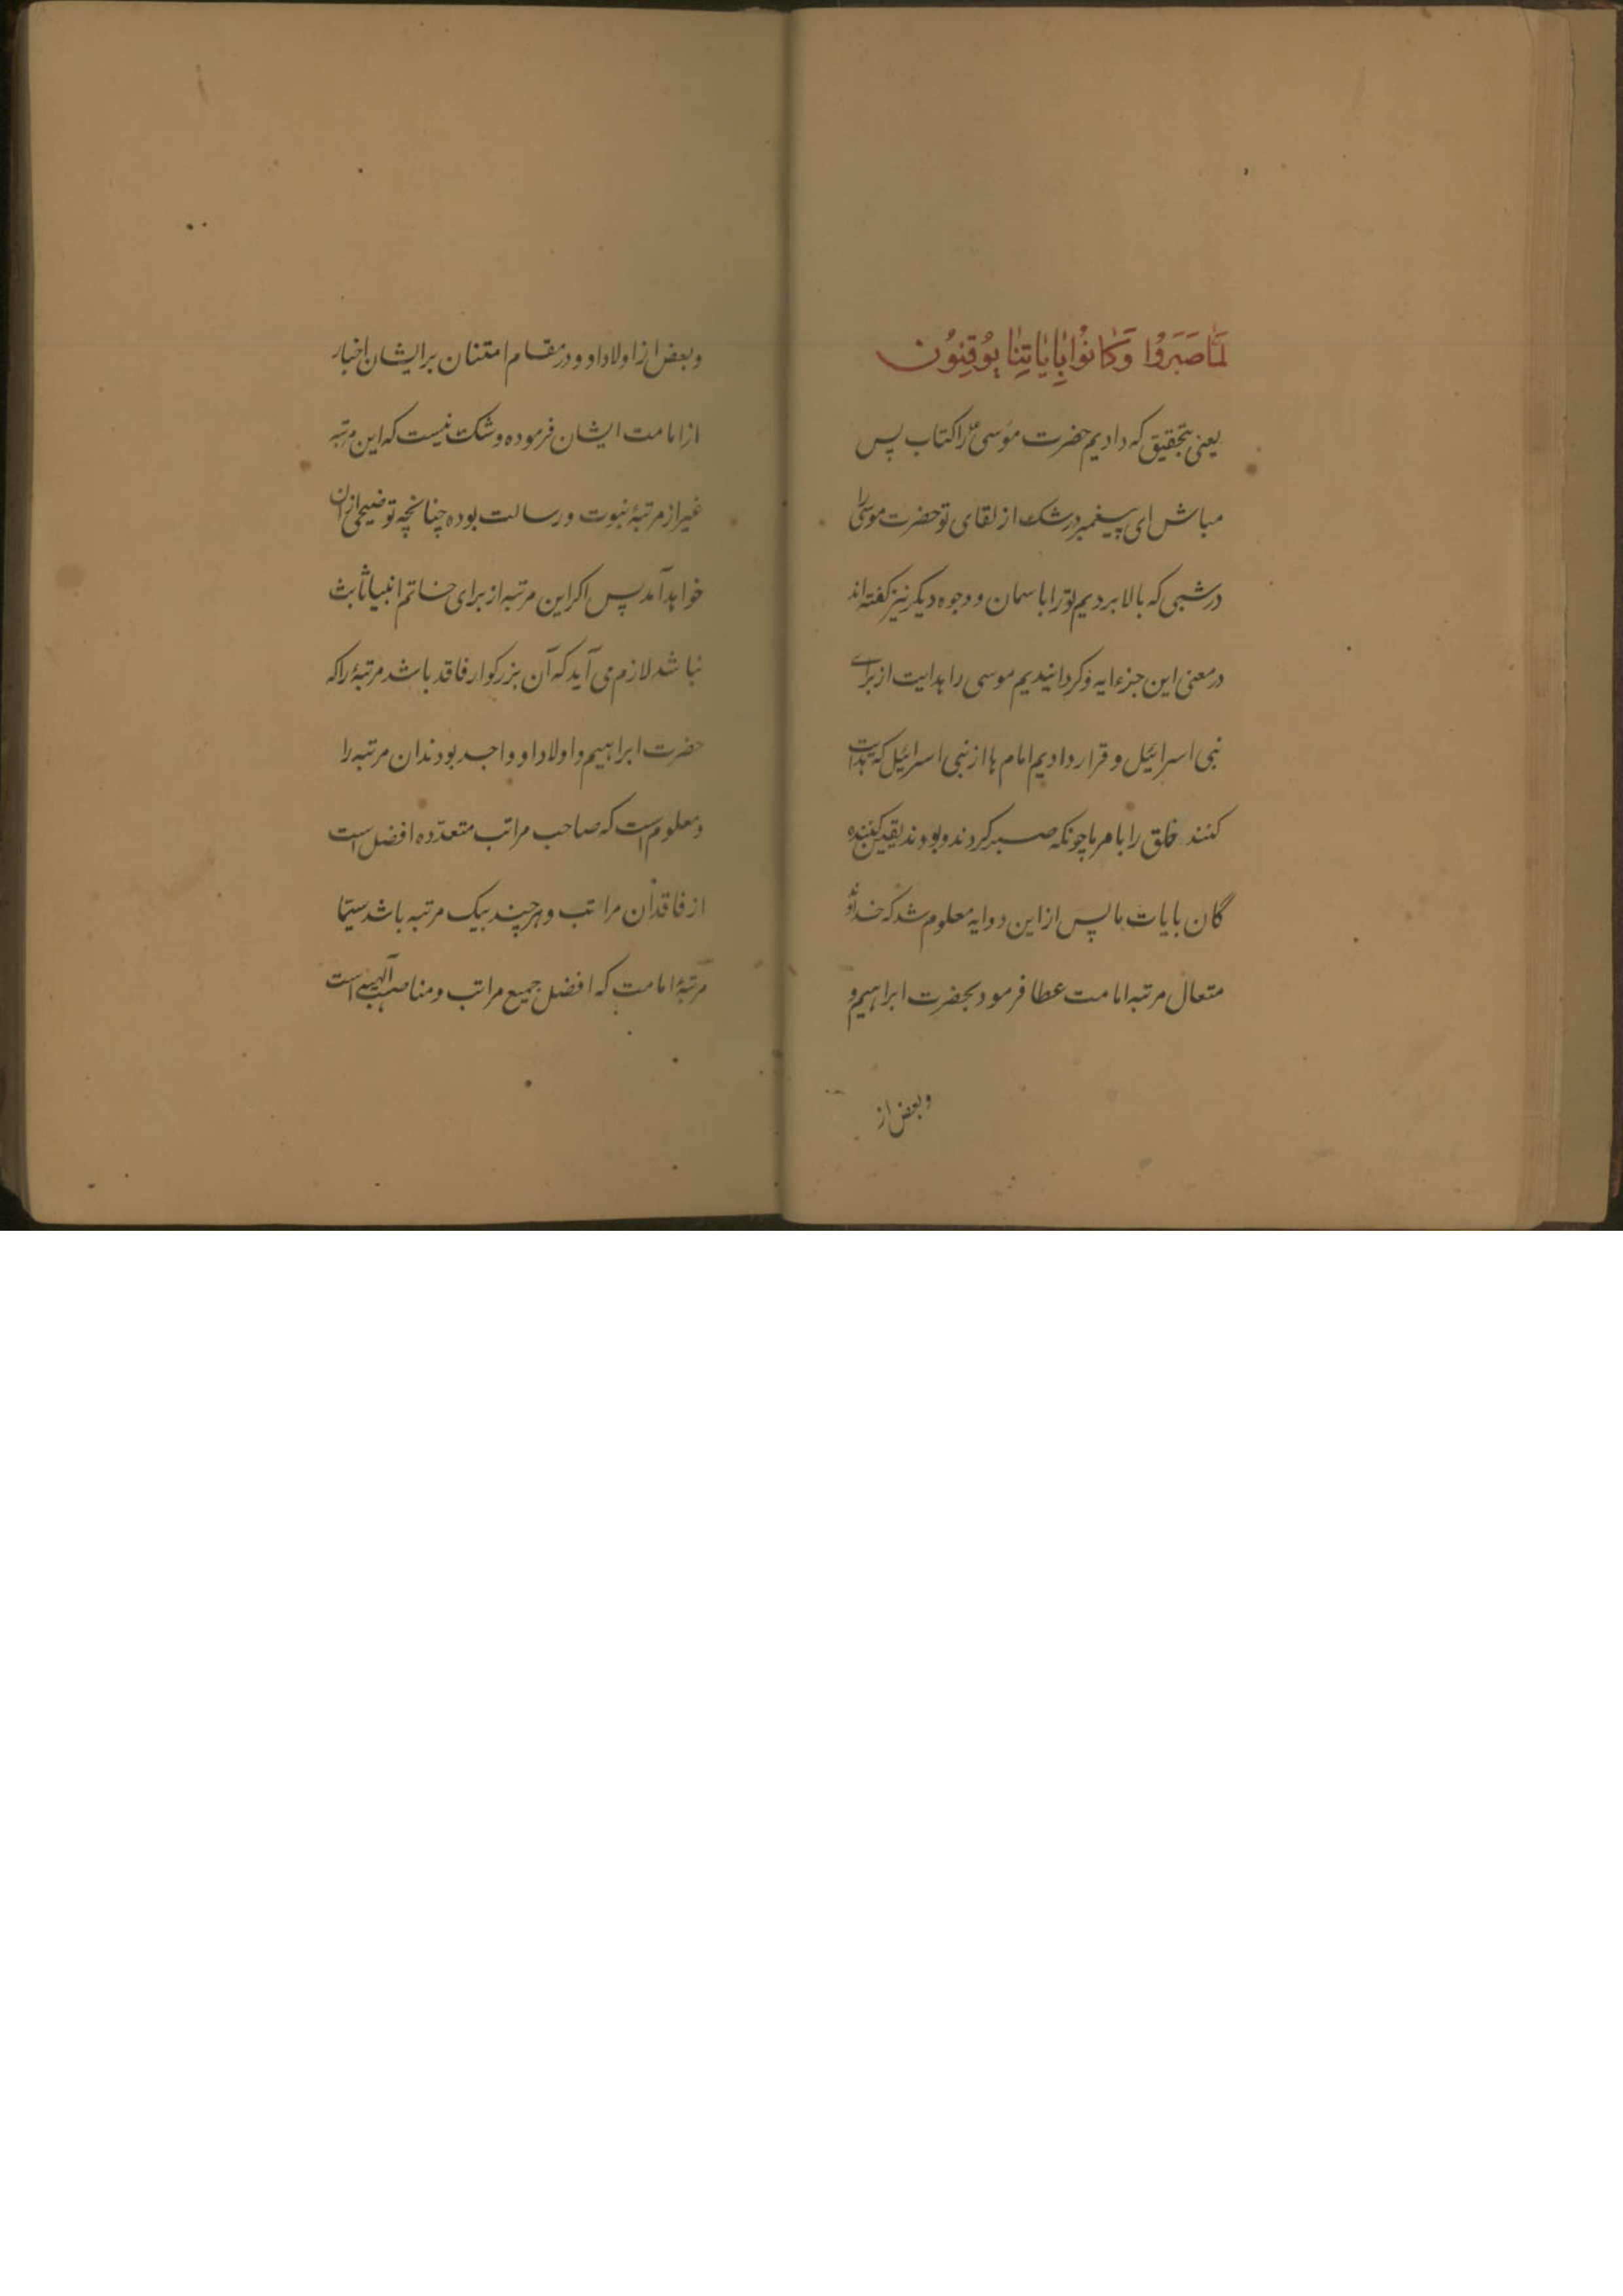 لَمّا صَبَرُوا وَ کانُوا بِایاتِنا یُوقِنُون
یعنی بتحقیق که دادیم حضرت موسی ع را کتاب پس
مباش ای پیغمبر در شک از لقای تو حضرت موسی را
در شبی که بالا بردیم تو را باسمان و وجوه دیکر نیز کفته اند
در معنی این جزء ایه و کردانیدیم موسی را هدایت از برای
نبی اسرائیل و قرار دادیم امام ها از نبی اسرائیل که هدایت
کنند خلق را بامر ما چونکه صبر کردند و بودند یقین کننده
کان بایات ما پس از این دو ایه معلوم شد که خداوند
متعال مرتبه امامت عطا فرمود بحضرت ابراهیم و
و بعض از
و بعض از اولاد او و در مقام امتنان بر ایشان اخبار
از امامت ایشان فرموده و شک نیست که این مرتبه
غیر از مرتبۀ نبوت و رسالت بوده چنانچه توضیحی از ان
خواهد آمد پس اکر این مرتبه از برای خاتم انبیا ثابت
نباشد لازم می آید که آن بزرکوار فاقد باشد مرتبۀ را که
حضرت ابراهیم و اولاد او واجد بودند ان مرتبه را
و معلوم است که صاحب مراتب متعدّده افضل است
از فاقد ان مراتب و هر چند بیک مرتبه باشد سیّما
مرتبۀ امامت که افضل جمیع مراتب و مناصب آلهیه است